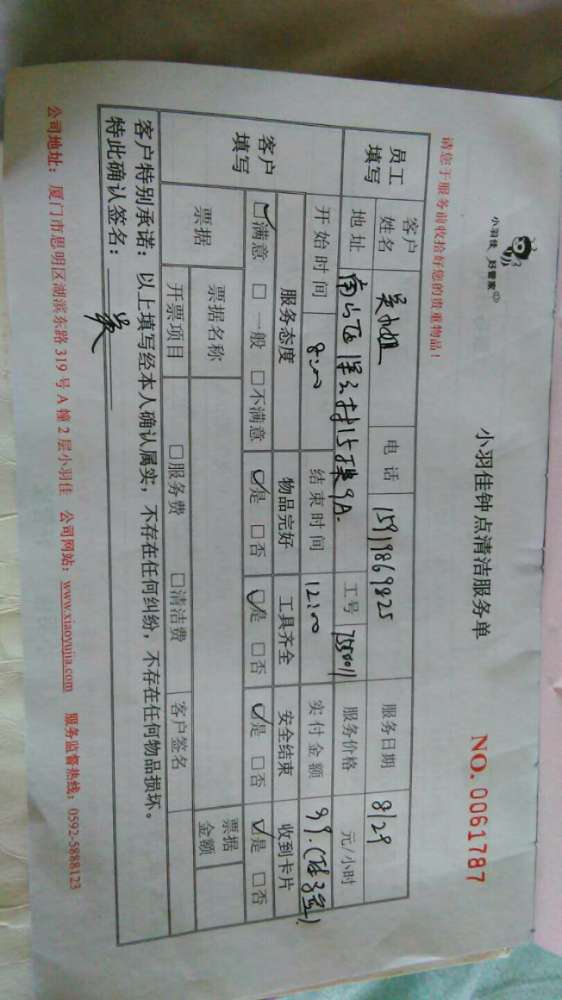 小羽佳 好管家
小羽佳钟点清洁服务单
NO. 0061787
请您于服务前收拾好您的贵重物品！
员工填写
客户姓名 吴小姐 电话 15919869825 服务日期 8/29
地址 南山区 工号 服务价格 元/小时
开始时间 8:00 结束时间 12:00 实付金额 99.
客户填写
服务态度 物品完好 工具齐全 安全结束 收到卡片
☑满意 □一般 □不满意 ☑是 □否 ☑是 □否 ☑是 □否 ☑是 □否
票据 票据名称 票据金额
开票项目 □服务费 □清洁费 客户签名
客户特别承诺：以上填写经本人确认属实，不存在任何纠纷，不存在任何物品损坏。
特此确认签名： 吴
公司地址：厦门市思明区湖滨东路319号A幢2层小羽佳 公司网站：www.xiaoyujia.com 服务监督热线：0592-5888123